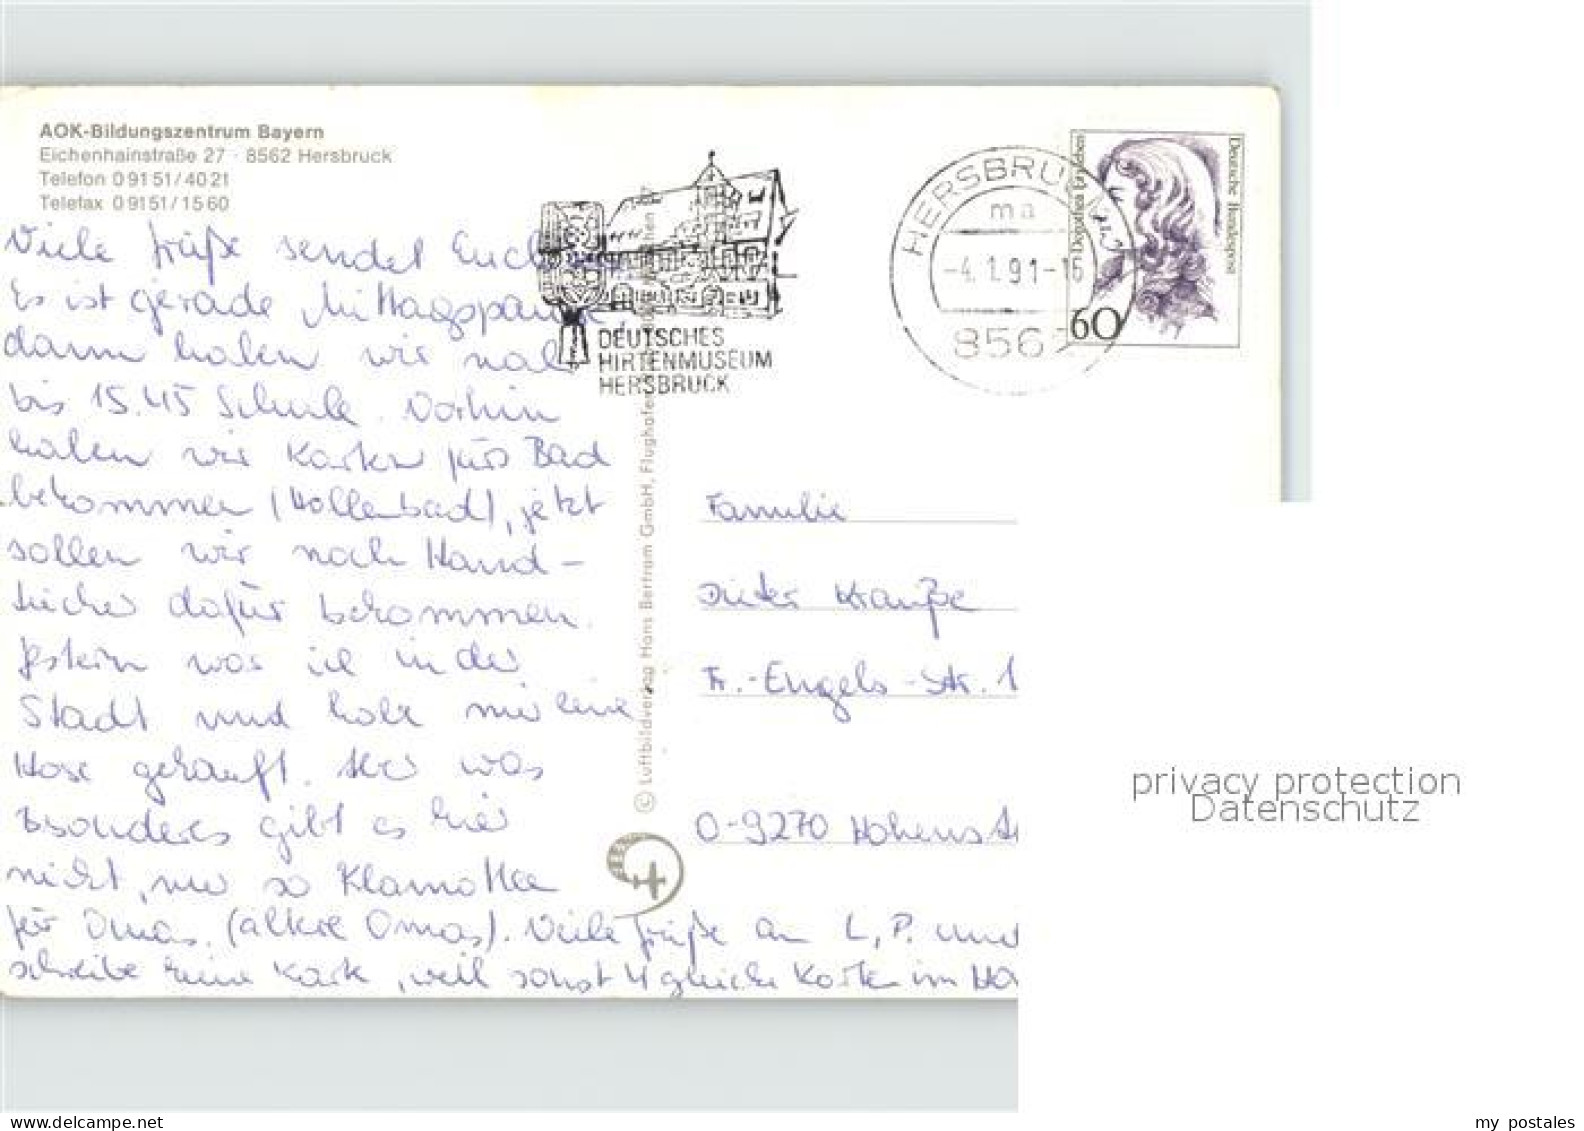 AOK-Bildungszentrum Bayern
Eichenhainstraße 27 · 8562 Hersbruck
Telefon 0 91 51/40 21
Telefax 0 91 51/15 60
Viele Grüße sendet Euch
Es ist gerade Mittagspause,
dann haben wir noch
bis 15.45 Schule. Vorhin
haben wir Karten fürs Bad
bekommen (Hallenbad), jetzt
sollen wir noch Hand-
tücher dafür bekommen.
Gestern war ich in der
Stadt und habe mir eine
Hose gekauft. Aber was
besonderes gibt es hier
nicht, nur so Klamotten
für Omas. (ältere Omas). Viele Grüße an L, P. und
schreibe keine Karte, weil sonst 4 gleiche Karten im
DEUTSCHES
HIRTENMUSEUM
HERSBRUCK
HERSBRUCK
ma
-4.1.91-15
856
Dorothea Erxleben
Deutsche Bundespost
60
© Luftbildverlag Hans Bertram GmbH, Flughafen
Familie
Dieter Krauße
Fr.-Engels-Str. 1
O-9270 Hohenst
privacy protection
Datenschutz
my postales